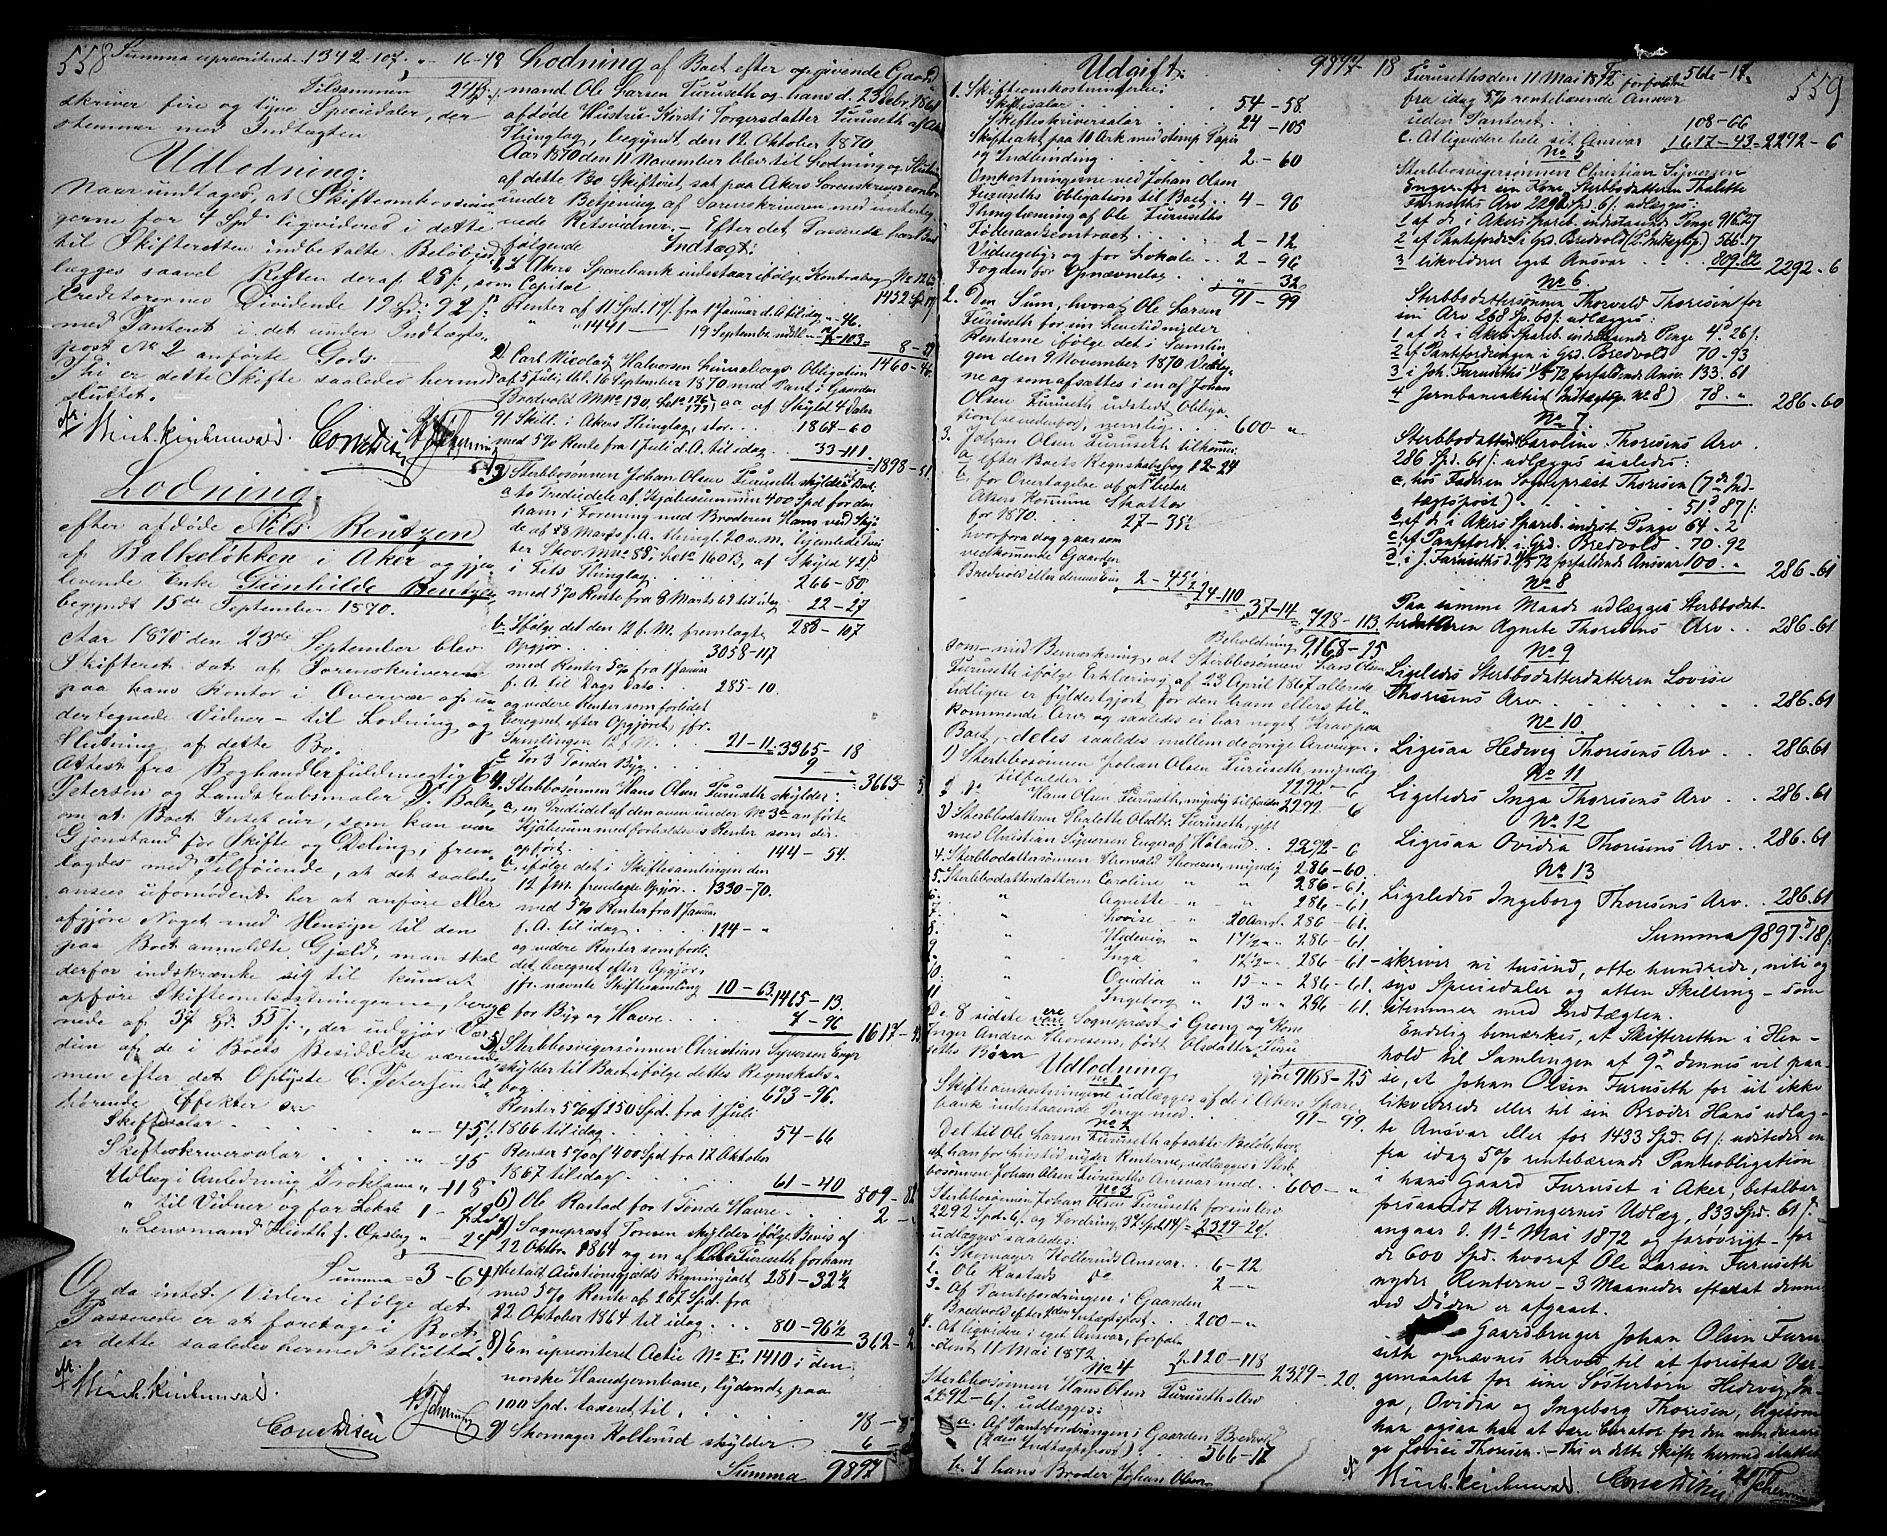 558
Summa uprioriteret 1342-107 " 16-48
Tilsammen 24
skriver fire og tyve Speciedaler, der
stemmer med Indtægten
Udlodning:
Naar undtages, at Skifteomkostnin
gerne for 4 Spd ligvideres i dette
til Skifteretten indbetalte Beløb, ud
lægges saavel Resten deraf 28 s, som
Creditorernes Dividende 19 Spd 92 s
med Panteret i det under Indtægts
post No 2 anførte Gods.
Thi er dette Skifte saaledes hermed
sluttet.
Lodning
efter afdøde Nils Bentzen
af Balkeløkken i Aker og gjen
levende Enke Gunhilde Bentzen
begyndt 15de September 1870.
Aar 1870 den 23de September blev
Skifteret sat af Sorenskriveren
paa hans Kontor i Overvær af un
dertegnede Vidner - til Lodning og
Slutning af dette Bo.
Attest fra Boghandlerfuldmægtig C.
Petersen og Landskabsmaler J. Balke
om at Boet Intet eier, som kan være
Gjenstand for Skifte og Deling, i frem
lagdes med Tilføiende, at det saaledes
ansees ufornødent her at anføre eller
afgjøre Noget med Hensyn til den
paa Boet anmeldte Gjæld, man skal
derfor indskrænke sig til kun at
opføre Skifteomkostningerne, bereg
nede af 34 Spd 55 s, der udgjør Vær
dien af de i Boets Besiddelse værende
men efter det Oplyste C. Petersen til
hørende Effekter
Skiftesalar " - 45 s
Skifteskriversalar " - 45
Udlæg i Anledning Proklama " - 118
" til Vidner og for Lokale 1 - 72
" Lensmand Hiorth f. Opslag " - 24
Summa = 3 - 64
Og da intet Videre ifølge det
Passerede er at foretage i Boet
er dette saaledes hermed sluttet.
Lodning af Boet efter opgivende Gaard
mand Ole Larsen Furuseth og hans d. 23 Febr. 1861
afdøde Hustru Kirsti Torgersdatter Furuseth af Akers
Thinglag, begyndt den 12 Oktober 1870
Aar 1870 den 11 November blev til Lodning og Slutning
af dette Bo Skifteret sat paa Akers Sorenskrivercontor
under Betjening af Sorenskriveren med underteg
nede Retsvidner. - Efter det Passerede har Boet
følgende Indtægt:
1) I Akers Sparebank indestaar ifølge Kontrabog No 126
Capital 1432
Renter af 11 Spd 17 s fra 1 Januar d. A til dag " - 46.
" " 1441 - 19 September indtil = 7-103 = 8 - 29
1460-46
2) Carl Nicolay Halvorsen Lunebergs Obligation
af 5 Juli, thl. 16 September 1870 med Pant i Gaarden
Bredvold MNo 130, Lnr 176 177 aa af Skyld 4 Daler
91 Skill. i Akers Thinglag, stor 1864-60
med 5% Rente fra 1 Juli d. A. til idag 33-111 = 1898-51
3) Sterbbosønnen Johan Olsen Furuseth skylder Boet:
a. to Trediedele af Kjøbesummen 400 Spd for den
ham i Forening med Broderen Hans ved Skjø
de af 28 Marts f. A. thinglt. 20 s. M. hjemlede Tvei
ter Skov MNo 88, Lnr 160 B, af Skyld 42 s
i Fets Thinglag 266-80
med 5% Rente fra 8 Marts 69 til idag 22-27
288-107
b. Ifølge det den 12 f. M. fremlagte
Opgjør 3058-117
med Renter 5% fra 1 Januar
f. A. til Dags Dato 285-10
og videre Renter som forbidet
beregnet efter Opgjøret jfr.
Samlingen 12 f. M. 21-11 = 3365-18
c. for 3 Tønder Byg 9 - " = 3663-5
4. Sterbbosønnen Hans Olsen Furuseth skylder:
a. en Trediedel af den oven under No 3a anførte
Kjøbesum med forholdsvis Renter som der
opført 144-54
b. ifølge det i Skiftesamlingen den
12 f. M. fremlagte Opgjør 1330-70
med 5% Renter fra 1 Januar
f. A. til idag 124-"
og videre Renter som forbi
det beregnet efter Opgjør
jfr. nævnte Skiftesamling 10-63 1465-13
c. for Byg og Havre 7-96 1617-43
5) Sterbbosvigersønnen Christian Syversen Enger
skylder til Boet ifølge dettes Regnskabs
bog 673-96
Renter 5% af 250 Spd. fra 1 Juli
1866 til idag 54-66
Renter 5% af 400 Spd fra 12 Oktober
1867 til idag 61-40 809-82
6) Ole Rastad for 1 Tønde Havre 2-"
7) Sogneprest Toresen skylder ifølge Bevis af
22 Oktbr 1864 og en af Ole Furuseth for ham
betalt Auctionsgjælds Regning ialt 281-32½
med 5% Rente af 267 Spd. fra
22 Oktober 1864 til idag 80-96½ 362-
8) En uprioriteret Actie No E, 1410 i den
norske Hovedjernbane, lydende paa
100 Spd. taxeret til 78-"
9) Skomager Hollerud skylder 6-
Summa 9897
559
Udgift: 9897-18
1. Skifteomkostningerne:
Skiftesalar 54-58
Skifteskriversalar 24-105
Skifteakt paa 10 Ark med stemp Papir
og Indbinding 2-60
Omkostningerne ved Johan Olsen
Furuseths Obligation til Boet 4-96
Thinglæsning af Ole Furuseths
Føderaadscontract 2-12
Vidnegebyr og for Lokale 2-96
Fogden for Opnævnelse " 32
91-99
2. Den Sum, hvoraf Ole Larsen
Furuseth for sin Levetid nyder
Renterne ifølge det i Samlin
gen den 9 November 1870 Vedtag
ne og som afsættes i en af Johan
Olsen Furuseth udstedt Obliga
tion (se nedenfor), nemlig 600-"
3. Johan Olsen Furuseth tilkommer
a. efter Boets Regnskabsbog 12-24
b. for Overtagelse af at betale
Akers Kommune Skatter
for 1870 27-35½
hvorfra dog gaar som
vedkommende Gaarden
Bredvold eller dennes Eier 2-45½
24-110
37-14 728-113
Beholdning 9168-25
som - med Bemærkning, at Sterbbosønnen Lars Olsen
Furuseth ifølge Erklæring af 23 April 1867 allerede
tidligere er fyldestgjort for den ham ellers til
kommende Arv og saaledes ei har noget Krav paa
Boet, - deles saaledes mellem de øvrige Arvinger:
1) Sterbbosønnen Johan Olsen Furuseth, myndig
tilfalder 2292-6
2 do Hans Olsen Furuseth, myndig tilfalder 2292-6
3) Sterbbodatteren Thalette Olsdtr. Furuseth, gift
med Christian Syversen Enger af Høland 2292-6
4. Sterbbodattersønnen Thorvald Thoresen, myndig 286-60
5. Sterbbodatterdatteren Caroline " " 286-61
6. " Agnette - " 286-61
7. " Lovise - 20 Aargl. 286-61
8. " Hedevig " 17½ " 286-61
9. " Inga " 17½ " 286-61
10. " Ovidia " 15 - " 286-61
11 " Ingeborg " 13 " " 286-61
De 8 sidste ere Sogneprest i Grong og Kone
Inger Andrea Thoresens, født Olsdatter Furu
seths Børn gjøre 9168-25
Udlodning
No 1
Skifteomkostningerne udlægges af de i Akers Spare
bank indestaaende Penge med 91-99
No 2
Det til Ole Larsen Furuseth afsatte Beløb, hvor
af han for Livstid nyder Renterne, udlægges i Sterb
bosønnen Johan Olsen Furuseths Ansvar med 600-"
No 3
Sterbbosønnen Johan Olsen Furuseth for sin Arv
2292 Spd. 6 s og Fordring 37 Spd. 14 s = 2329-20
udlægges saaledes:
1. Skomager Holleruds Ansvar 6-22
2. Ole Rastads do 2-"
3. Af Pantefordringen i Gaarden
Bredvold efter 2den Indtægtspost 200-"
4. At ligvidere i eget Ansvar, forfal
dent 11 Mai 1872 2120-118 2329-20
No 4
Sterbbosønnen Hans Olsen Furuseth Arv
2292-6 s udlægges:
a. Af Pantefordringen i Gaarden Bredvold
(2den Indtægtspost) 566-17
b. I hans Broder Johan Olsen
Furuseths den 11 Mai 1872 forfaldne 566-17
fra idag 5% rentebærende Ansvar
uden Panteret 108-66
c. At liqvidere hele sit Ansvar 1617-43 = 2292-6
No 5
Sterbbosvigersønnen Christian Syversen
Enger for sin Kone Sterbbodatteren Thalette
Furuseths Arv 2292 Spd. 6 s udlægges:
1 af de i Akers Spareb. indestaaende Penge 916.27
2 af Pantefordr. i Grd Bredvold (2. Indtægtsp.) 566.17
3 likviderer eget Ansvar 809.82 2292-6
No 6
Sterbbodattersønnen Thorvald Thoresen for
sin Arv 286 Sp. 60 s udlægges:
1 af de i Akers Spareb. indestaaende Penge 4d 26 s
2 af Pantefordringen i Grd. Bredvold 70-93
3 i Joh. Furuseths 11/5 72 forfaldende Ansv. 133.61
4 Jernbaneaktien (Indtægtsp. No 8) 78." 286-60
No 7
Sterbbodatterd. Caroline Thoresens Arv
286 Spd. 61 s udlægges saaledes:
a. hos Faderen Sogneprest Thoresen (7de Ind
tægtspost) 51d 87 s
b. af de i Akers Spareb. indest. Penge 64-2
c. af Pantefordr. i Grd. Bredvold 70-92
d. i J. Furuseths d. 11/5 72 forfaldende Ansvar 100." 286-61
No 8
Paa samme Maade udlægges Sterbbodat-
terdatteren Agnete Thoresens Arv 286.61
No 9
Ligeledes Sterbbodatterdatteren Lovise
Thoresens Arv 286.61
No 10
Ligesaa Hedvig Thoresens Arv 286.61
No 11
Ligeledes Inga Thoresens Arv 286.61
No 12
Ligesaa Ovidia Thoresens Arv 286.61
No 13
Ligeledes Ingeborg Thoresens Arv 286.61
Summa 9897d 18 s
skriver ni tusind, otte hundrede, niti og
syv Speciedaler og atten Skilling - som
stemmer med Indtægten.
Endelig bemærkes, at Skifteretten i Hen-
hold til Samlingen af 9d dennes vil paa-
se, at Johan Olsen Furuseth for sit ikke
likviderede eller til sin Broder Hans udlag-
te Ansvar eller for 1433 Spd. 61 s udsteder en
fra idag 5% rentebærende Panteobligation
i hans Gaard Furuset i Aker, betalbar
forsaavidt Arvingernes Udlæg, 833 Spd. 61 s
angaar d. 11te Mai 1872 og forøvrigt - for
de 600 Spd. hvoraf Ole Larsen Furuseth
nyder Renterne - 3 Maaneder efterat denne
ved Døden er afgaaet.
Gaardbruger Johan Olsen Furu-
seth opnævnes herved til at forestaa Vær-
gemaalet for sine Søsterbørn Hedevig, In-
ga, Ovidia og Ingeborg Thoresen, ligesom
han ogsaa har at være Curator for den mindreaari-
ge Lovise Thoresen. - Thi er dette Skifte hermed sluttet